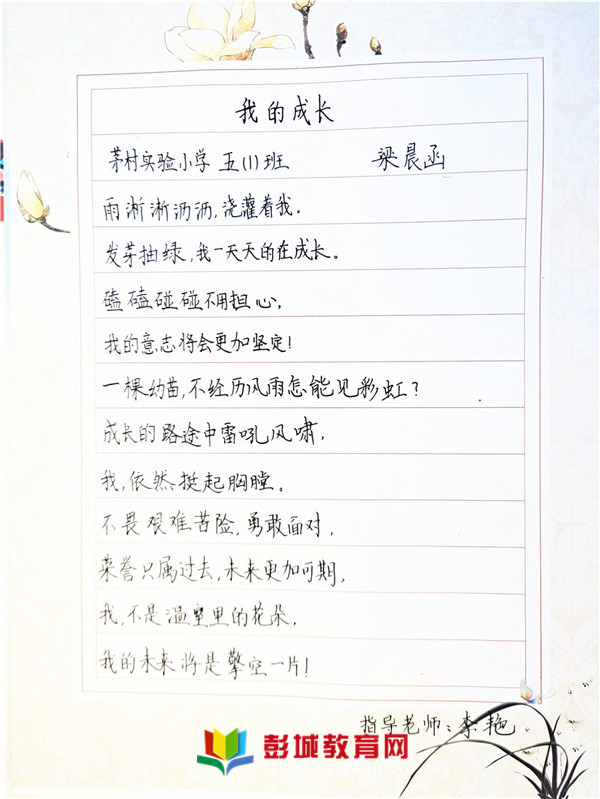 我的成长
茅村实验小学 五(1)班 梁晨函
雨淅淅沥沥,浇灌着我.
发芽抽绿,我一天天的在成长。
磕磕碰碰不用担心,
我的意志将会更加坚定!
一棵幼苗,不经历风雨怎能见彩虹?
成长的路途中雷吼风啸,
我,依然挺起胸膛。
不畏艰难苦险,勇敢面对,
荣誉只属过去,未来更加可期,
我,不是温室里的花朵.
我的未来将是擎空一片!
指导老师:李艳
彭城教育网